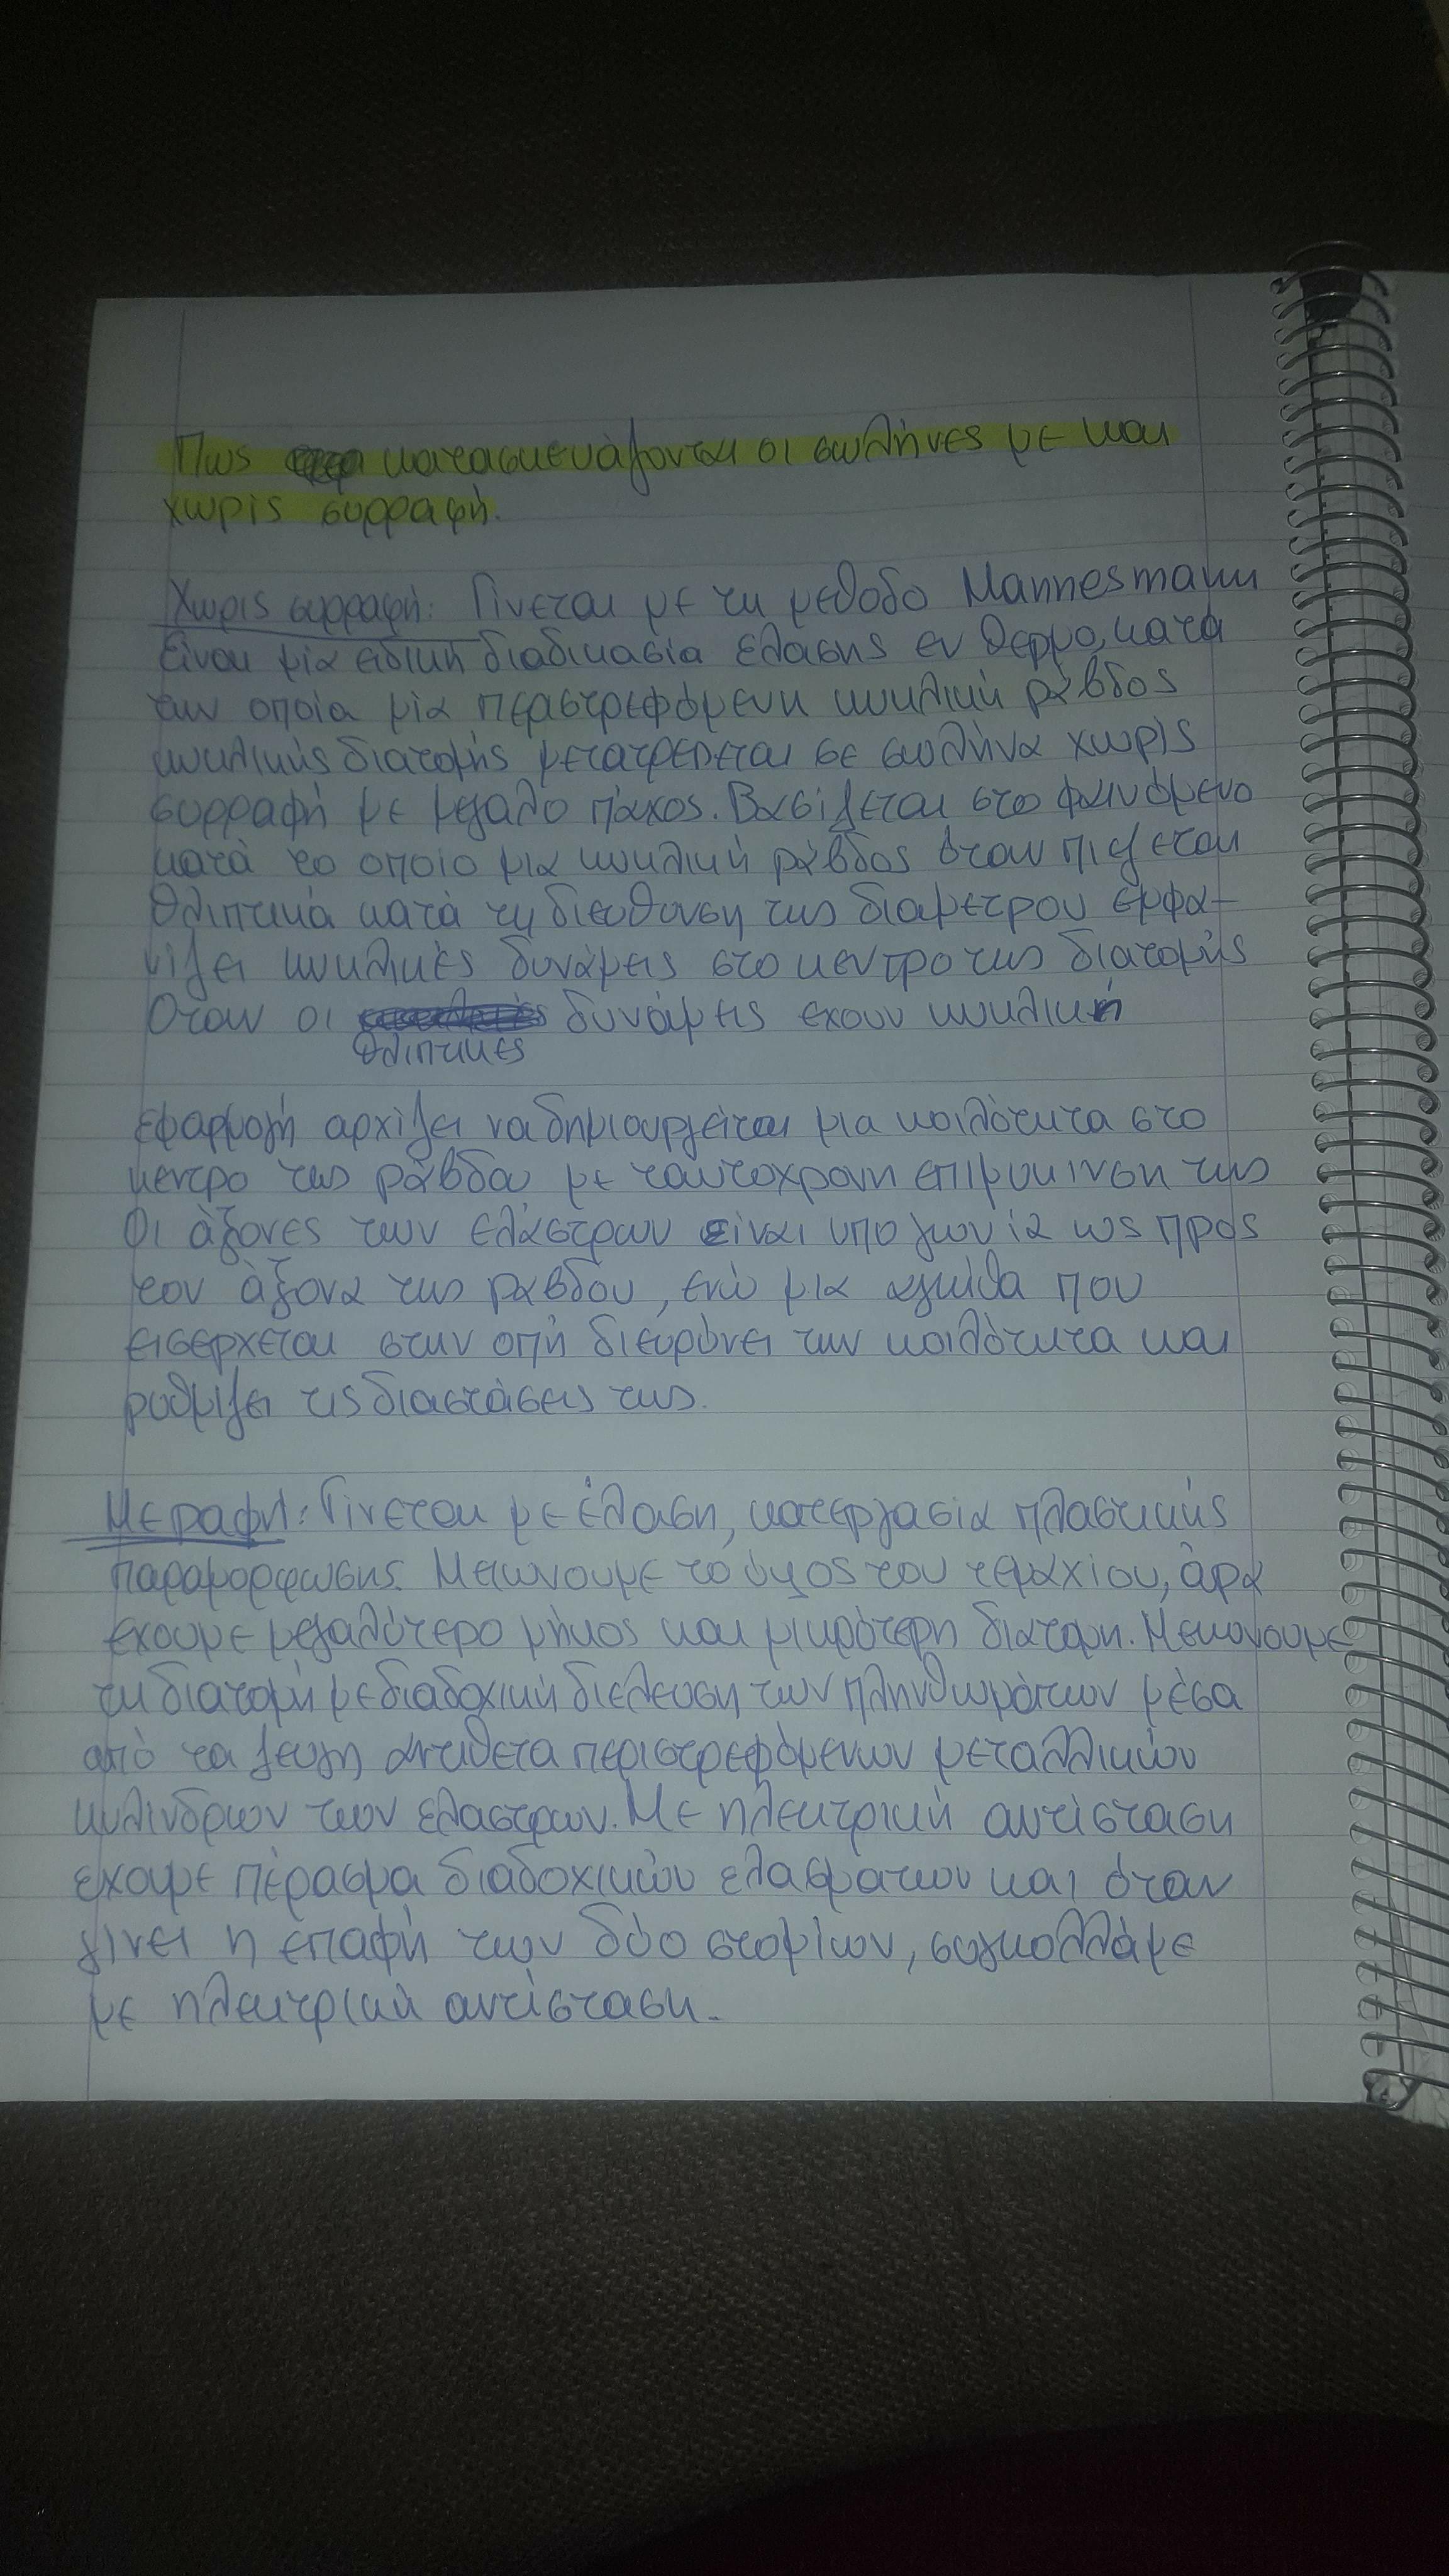 Πως κατασκευάζονται οι σωλήνες με και
χωρίς συρραφή.
Χωρις συρραφή: Γίνεται με τη μεθοδο Mannesmann
Είναι μία ειδική διαδικασία έλασης εν θερμο, κατά
την οποία μία περιστρεφόμενη κυκλική ράβδος
κυκλικής διατομής μετατρέπεται σε σωλήνα χωρίς
συρραφή με μεγαλο πάχος. Βασίζεται στο φαινόμενο
κατά το οποίο μια κυκλική ράβδος όταν πιεζεται
θλιπτικά κατά τη διευθυνση της διαμετρου εμφα-
νίζει κυκλικές δυνάμεις στο κεντρο της διατομής
Οταν οι δυνάμεις εχουν κυκλική
θλιπτικες
εφαρμογή αρχίζει να δημιουργείται μια κοιλότητα στο
κεντρο της ράβδου με ταυτοχρονη επιμυκινση της
Οι άξονες των ελάστρων είναι υπο γωνία ως προς
τον άξονα της ραβδου, ενώ μια αγκιθα που
εισερχεται στην οπή διευρύνει την κοιλότητα και
ρυθμίζει τις διαστάσεις της.
Με ραφή: Γίνεται με έλαση, κατεργασία πλαστικής
παραμορφωσης. Μειωνουμε το ύψος του τεμαχίου, άρα
εχουμε μεγαλύτερο μήκος και μικρότερη διατομη. Μειωνουμε
τη διατομή με διαδοχική διελευση των πληνθωμάτων μέσα
από τα ζευγη αντιθετα περιστρεφόμενων μεταλλικών
κυλινδρων των ελαστρων. Με ηλεκτρική αντίσταση
εχουμε πέρασμα διαδοχικών ελασματων και όταν
γινει η επαφή των δύο στομίων, συγκολλάμε
με ηλεκτρική αντίσταση.